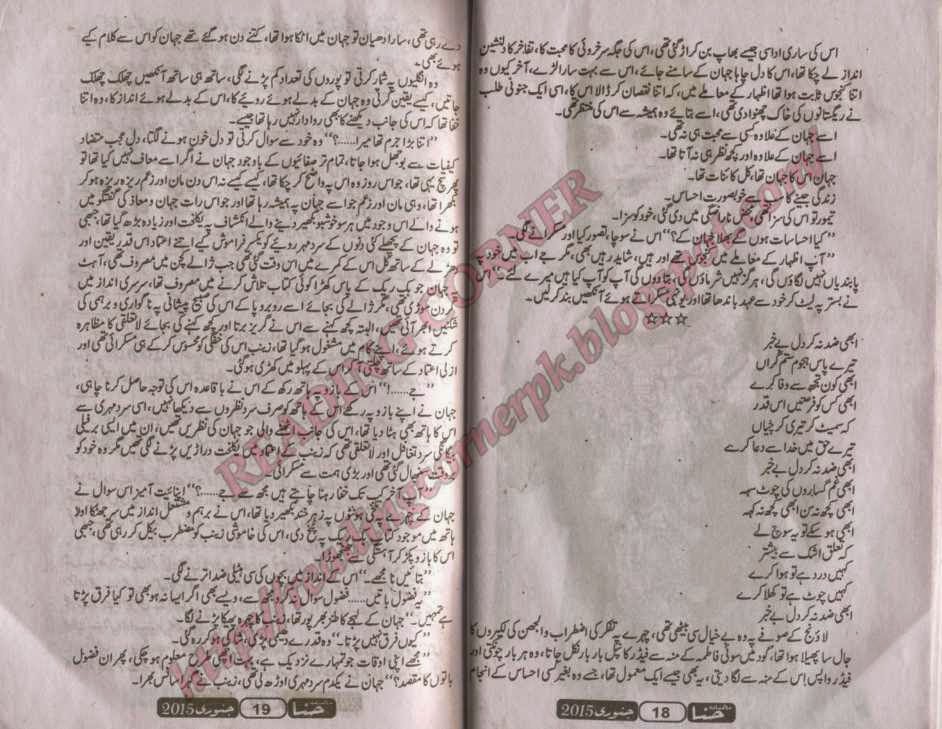 اس کی ساری اداسی جیسے بھاپ بن کر اڑ گئی تھی، اس کی جگہ سرخروئی کا محبت کا، تفاخر کا دلنشین
انداز لے چکا تھا، اس کا دل چاہا جہان کے سامنے جائے، اس سے بہت سارا لڑے، آخر کیوں وہ
اتنا کنجوس ثابت ہوا تھا اظہار کے معاملے میں، کہ اتنا نقصان کر ڈالا اس کا، اسی ایک جنونی طلب
نے ریگستانوں کی خاک چھنوا دی تھی، اسے بتائے وہ ہمیشہ سے اس کی منتظر تھی۔
اسے جہان کے علاوہ کسی سے محبت ہی نہ تھی۔
اسے جہان کے علاوہ اور کچھ نظر ہی نہ آتا تھا۔
جہان اس کا جہان تھا، کل کائنات تھا۔
زندگی جینے کا سب سے خوبصورت احساس۔
تیمور تو اس کی سزا تھی، محض ناراضگی میں دی گئی، خود کو سزا۔
"کیا احساسات ہوں گے بھلا جہان کے؟" اس نے سوچا، تصور کیا اور مسکرانے لگی۔
"آپ اظہار کے معاملے میں کنجوس تھے اور ہیں، شاید رہیں بھی، مگر جے اب میں خود پہ
پابندیاں نہیں لگاؤں گی، ہرگز نہیں شرماؤں گی، بتا دوں گی آپ کو آپ کیا ہیں میرے لئے؟" اس
نے بستر پہ لیٹ کر خود سے عہد باندھا تھا اور یونہی مسکراتے ہوئے آنکھیں بند کر لیں۔
☆☆☆
ابھی ضد نہ کر دل بے خبر
تیرے پاس ہجوم ستم گراں
ابھی کون تجھ سے وفا کرے
ابھی کس کو فرصتیں اس قدر
کہ سمیٹ کر تیری کرچیاں
تیرے حق میں خدا سے دعا کرے
ابھی ضد نہ کر دل بے خبر
ابھی غم گساروں کی چوٹ سہہ
ابھی کچھ نہ سن ابھی کچھ نہ کہہ
ابھی ہو سکے تو یہ سوچ لے
کہ تعلق اشک سے بیشتر
کہیں درد ہے تو ہوا کرے
کہیں چوٹ ہے تو کھلا کرے
ابھی ضد نہ کر دل بے خبر
لاؤنج کے صوفے پہ وہ بے خیالی سی بیٹھی تھی، چہرے پہ تفکر کی اضطراب و الجھن کی لکیروں کا
جال سا پھیلا ہوا تھا، گود میں سوئی فاطمہ کے منہ سے فیڈر کا نپل بار بار نکل جاتا، وہ ہر بار چونکتی اور
فیڈر واپس اس کے منہ سے لگا دیتی، یہ بھی جیسے ایک معمول تھا، جسے وہ بغیر کسی احساس کے انجام
حنا 18 جنوری 2015
دے رہی تھی، سارا دھیان تو جہان میں اٹکا ہوا تھا، کتنے دن ہو گئے تھے جہان کو اس سے کلام کیے
ہوئے بھی۔
وہ انگلیوں پہ شمار کرتی تو پوروں کی تعداد کم پڑنے لگی، ساتھ ہی ساتھ آنکھیں چھلک چھلک
جاتیں، کیسے یقین کرتی وہ جہان کے بدلے ہوئے رویے کا، اس کے بدلے ہوئے انداز کا، وہ اتنا
خفا تھا کہ اس کی جانب دیکھنے کا بھی روادار نہیں رہا تھا جیسے۔
"اتنا بڑا جرم تھا میرا......؟" وہ خود سے سوال کرتی تو دل خون ہونے لگتا، دل عجب متضاد
کیفیات سے بوجھل ہوا جاتا، تمام تر صفائیوں کے باوجود جہان نے اگر اسے معاف نہیں کیا تھا تو
پھر سچ یہی تھا، جو اس روز وہ اس پہ واضح کر چکا تھا، کیسے کیسے نہ اس دن مان اور زعم ریزہ ریزہ ہو کر
بکھرا تھا، وہی مان اور زعم جو اسے جہان پہ ہمیشہ رہا تھا اور جو اس رات جہان و معاذ کی گفتگو میں
ہونے والے اس وجود میں ہر سو خوشبو بکھیر دینے والے انکشاف پہ یکلخت اور زیادہ بڑھ گیا تھا، جبھی
تو وہ جہان کے پچھلے کئی دنوں کے سرد مہر رویے کو یکسر فراموش کیے اتنے اعتماد اس قدر یقین اور
جہان کو بک ریک کے پاس کھڑا کوئی کتاب تلاش کرنے میں مصروف تھا، سرسری انداز میں
شکنیں ابھر آئی تھیں، البتہ کچھ کہنے سے اس نے گریز برتا اور کچھ کہنے کی بجائے لاتعلقی کا مظاہرہ
کرتے ہوئے، اپنے کام میں مشغول ہو گیا تھا، زینب اس کی خفگی کو محسوس کر کے ہی مسکرائی تھی اور
ازلی اعتماد کے ساتھ چلتی آ کر اس کے پہلو میں کھڑی ہو گئی۔
"جے......!" اس کے بازو پہ ہاتھ رکھ کے اس نے باقاعدہ اس کی توجہ حاصل کرنا چاہی،
جہان نے اپنے بازو پہ رکھے اس کے ہاتھ کو صرف سرد نظروں سے دیکھا نہیں، اسی سرد مہری سے
اس کا ہاتھ بھی ہٹا دیا تھا، اس کی جانب اٹھنے والی جو جہان کی نظریں تھیں، ان میں ایسی برفیلی
"آپ آخر کب تک خفا رہنا چاہتے ہیں مجھ سے جے......؟" اپنائیت آمیز اس سوال نے
جہان کے چہرے پہ حتیٰ ہونٹوں پہ زہر خند بکھیر دیا تھا، اس نے برہم و مشتعل انداز میں سر جھٹکا اور
ہاتھ میں موجود کتاب واپس ریک پہ پٹخ دی، اس کی خاموشی زینب کو مضطرب و بیکل کر رہی تھی، جبھی
اس کا بازو پکڑ کر آہستگی سے جھنجھوڑا۔
"بتائیں نا مجھے۔" اس کے انداز میں بچوں کی سی ہٹیلی ضد اتر نے لگی۔
"یہ فضول باتیں...... فضول سوال نہ کرو مجھ سے، ویسے بھی اگر ایسا نہ ہو بھی تو کیا فرق پڑتا
ہے تمہیں۔" جہان کے لہجے کا طنز بھرپور تھا، زینب کا چہرہ پھیکا پڑنے لگا۔
"کیوں فرق نہیں پڑتا۔" وہ قدرے دھیمی پڑتی شاکی ہو کر رہ گئی۔
"مجھے اپنی اوقات جو تمہارے نزدیک ہے، بہت اچھی طرح معلوم ہو چکی، پھر ان فضول
باتوں کا مقصد؟" جہان نے یکدم سرد مہری اوڑھ لی تھی، زینب نے گہرا سانس بھرا۔
حنا 19 جنوری 2015
READING CORNER
http://readingcornerpk.blogspot.com/